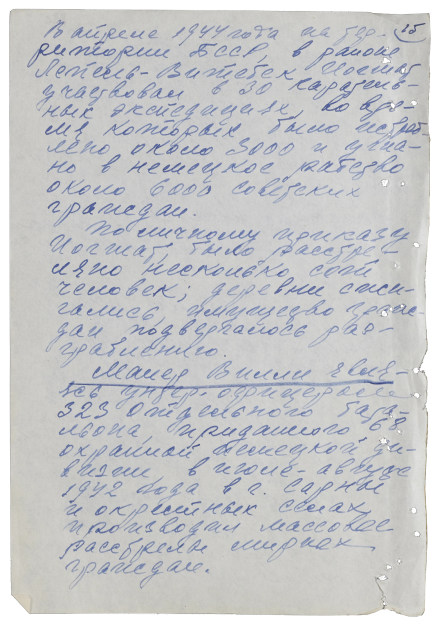 15
В апреле 1944 года на тер-
ритории БССР в районе
Лепель-Витебск
участвовал в 30 каратель-
ных экспедициях, во вре-
мя которых было истреб-
лено около 3000 и угна-
но в немецкое рабство
около 6000 советских
граждан.
По личному приказу
было расстре-
ляно несколько сот
человек; деревни сжи-
гались, имущество граж-
дан подвергалось раз-
граблению.
Майер Вилли
унтер-офицером
323 отдельного бата-
льона, приданного 68
охранной немецкой ди-
визии в июле-августе
1942 года в г. Сарны
и окрестных селах,
производил массовые
расстрелы мирных
граждан.